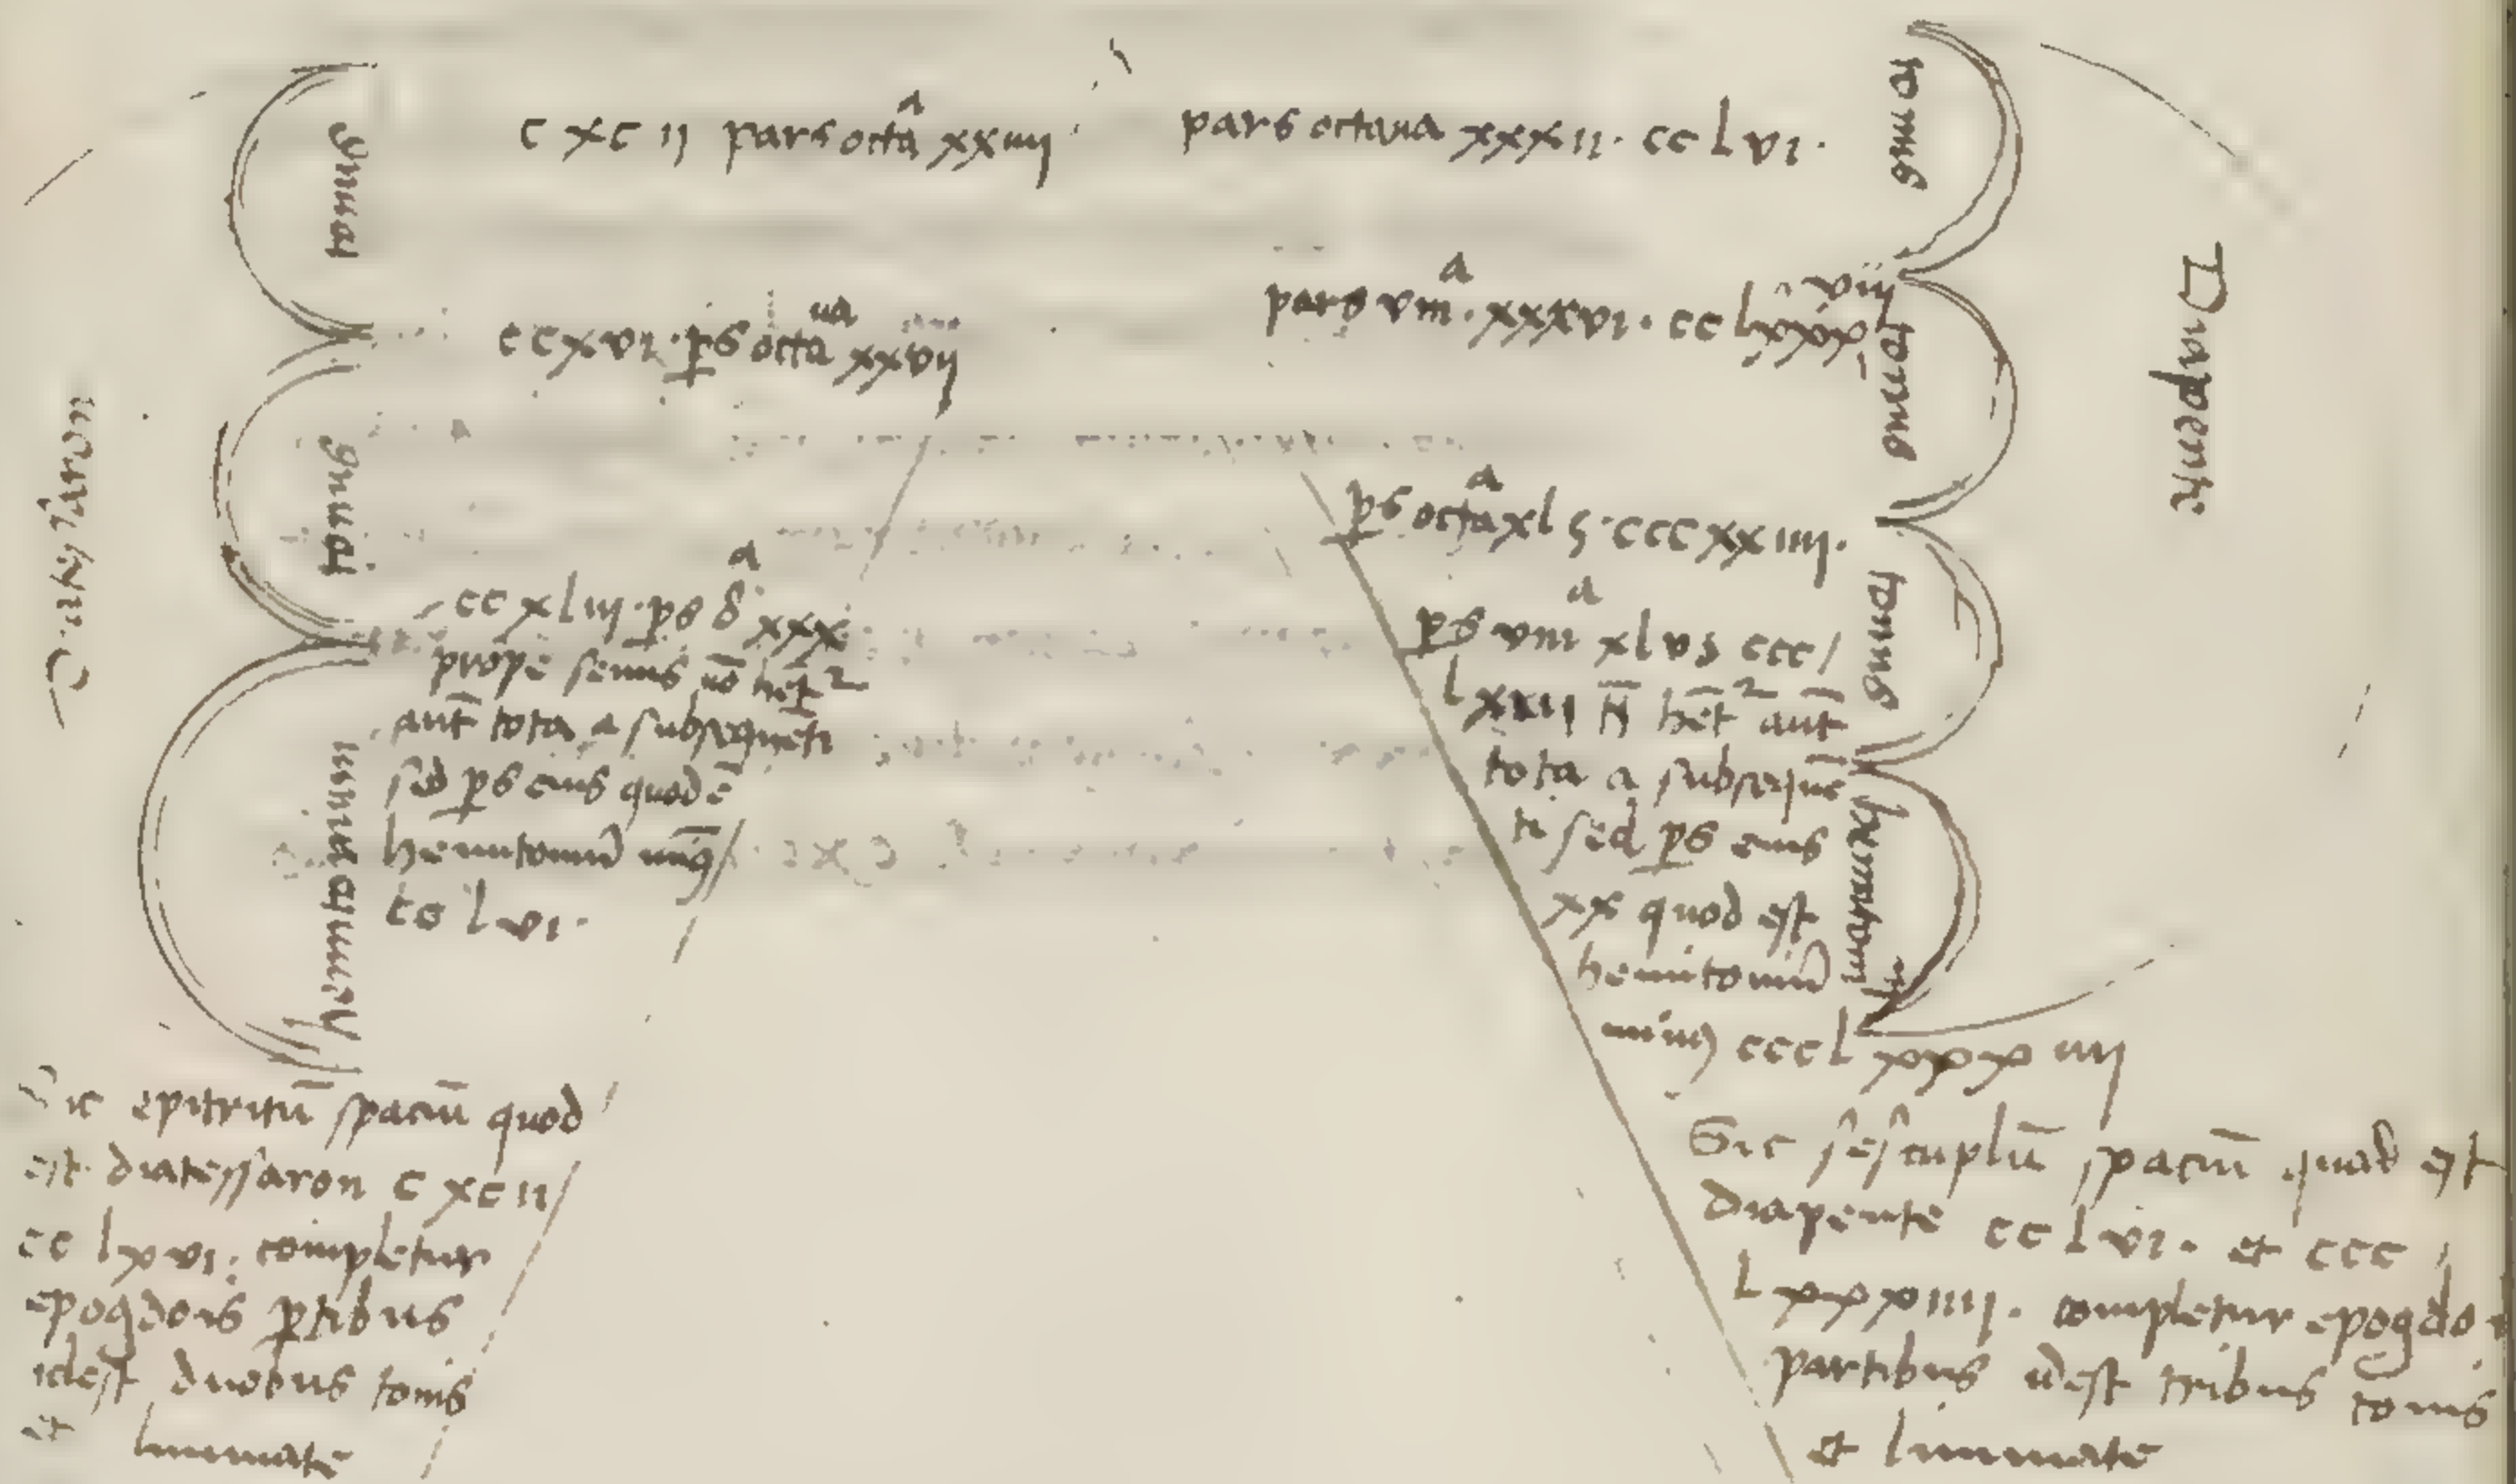 tonus
c xc ii pars octa^a xxiiii
ccxvi · ps octa^ua xxvii
tonus
cc xl iii · ps 8^a xxx
prope semis nō hēt²
aut̄ tota a subsequēti
sed ps eius quod ē
hemitoniū minꝯ /
cc lvi ·
Sic epitritū spaciū quod
est diatessaron c xc ii /
cc lxvi · completur
epogdois ptibus
idest duobus tonis
et limmate
pars octaua xxxii · cc lvi ·
tonus
pars viii^a · xxxvi · cc lxxxviii
tonus
ps octa^a xl s · cccxxiiii ·
tonus
ps viii^a xl vs ccc /
lxxii N̄ hēt² aut̄
tota a subsequē
ti sed ps eius
xx quod est
hemitoniū
minꝯ cccl xxx iiii
Diapente
Sic sescuplū spaciū quod est
diapente cc lvi · et ccc /
l xxxiiii · completur epogdo
partibus idest tribus tonis
et limmate